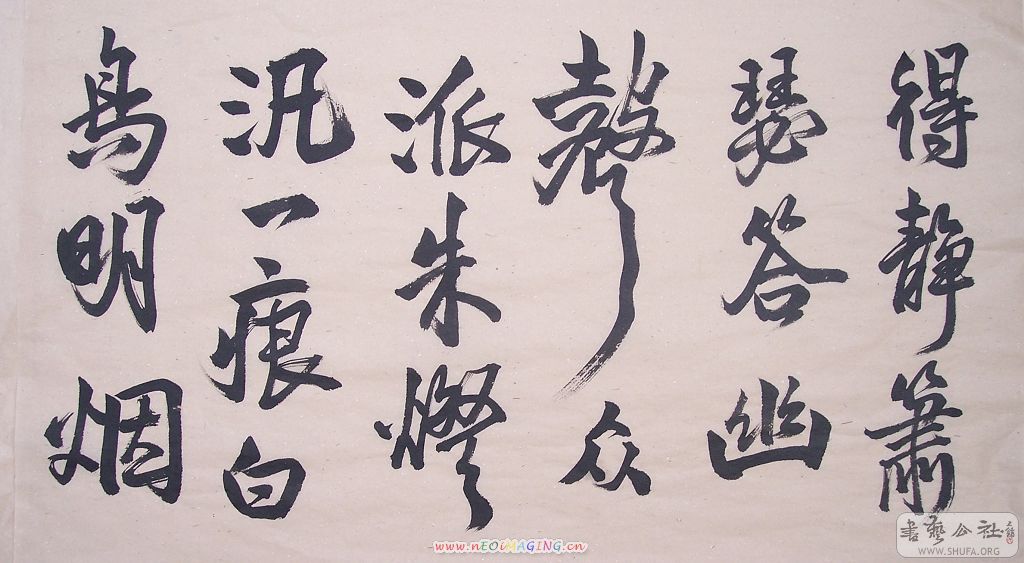 得静簫
瑟答幽
聲众
派朱燈
汎一痕白
鳥明烟
www.nEOiMAGING.cn
書藝公社
WWW.SHUFA.ORG